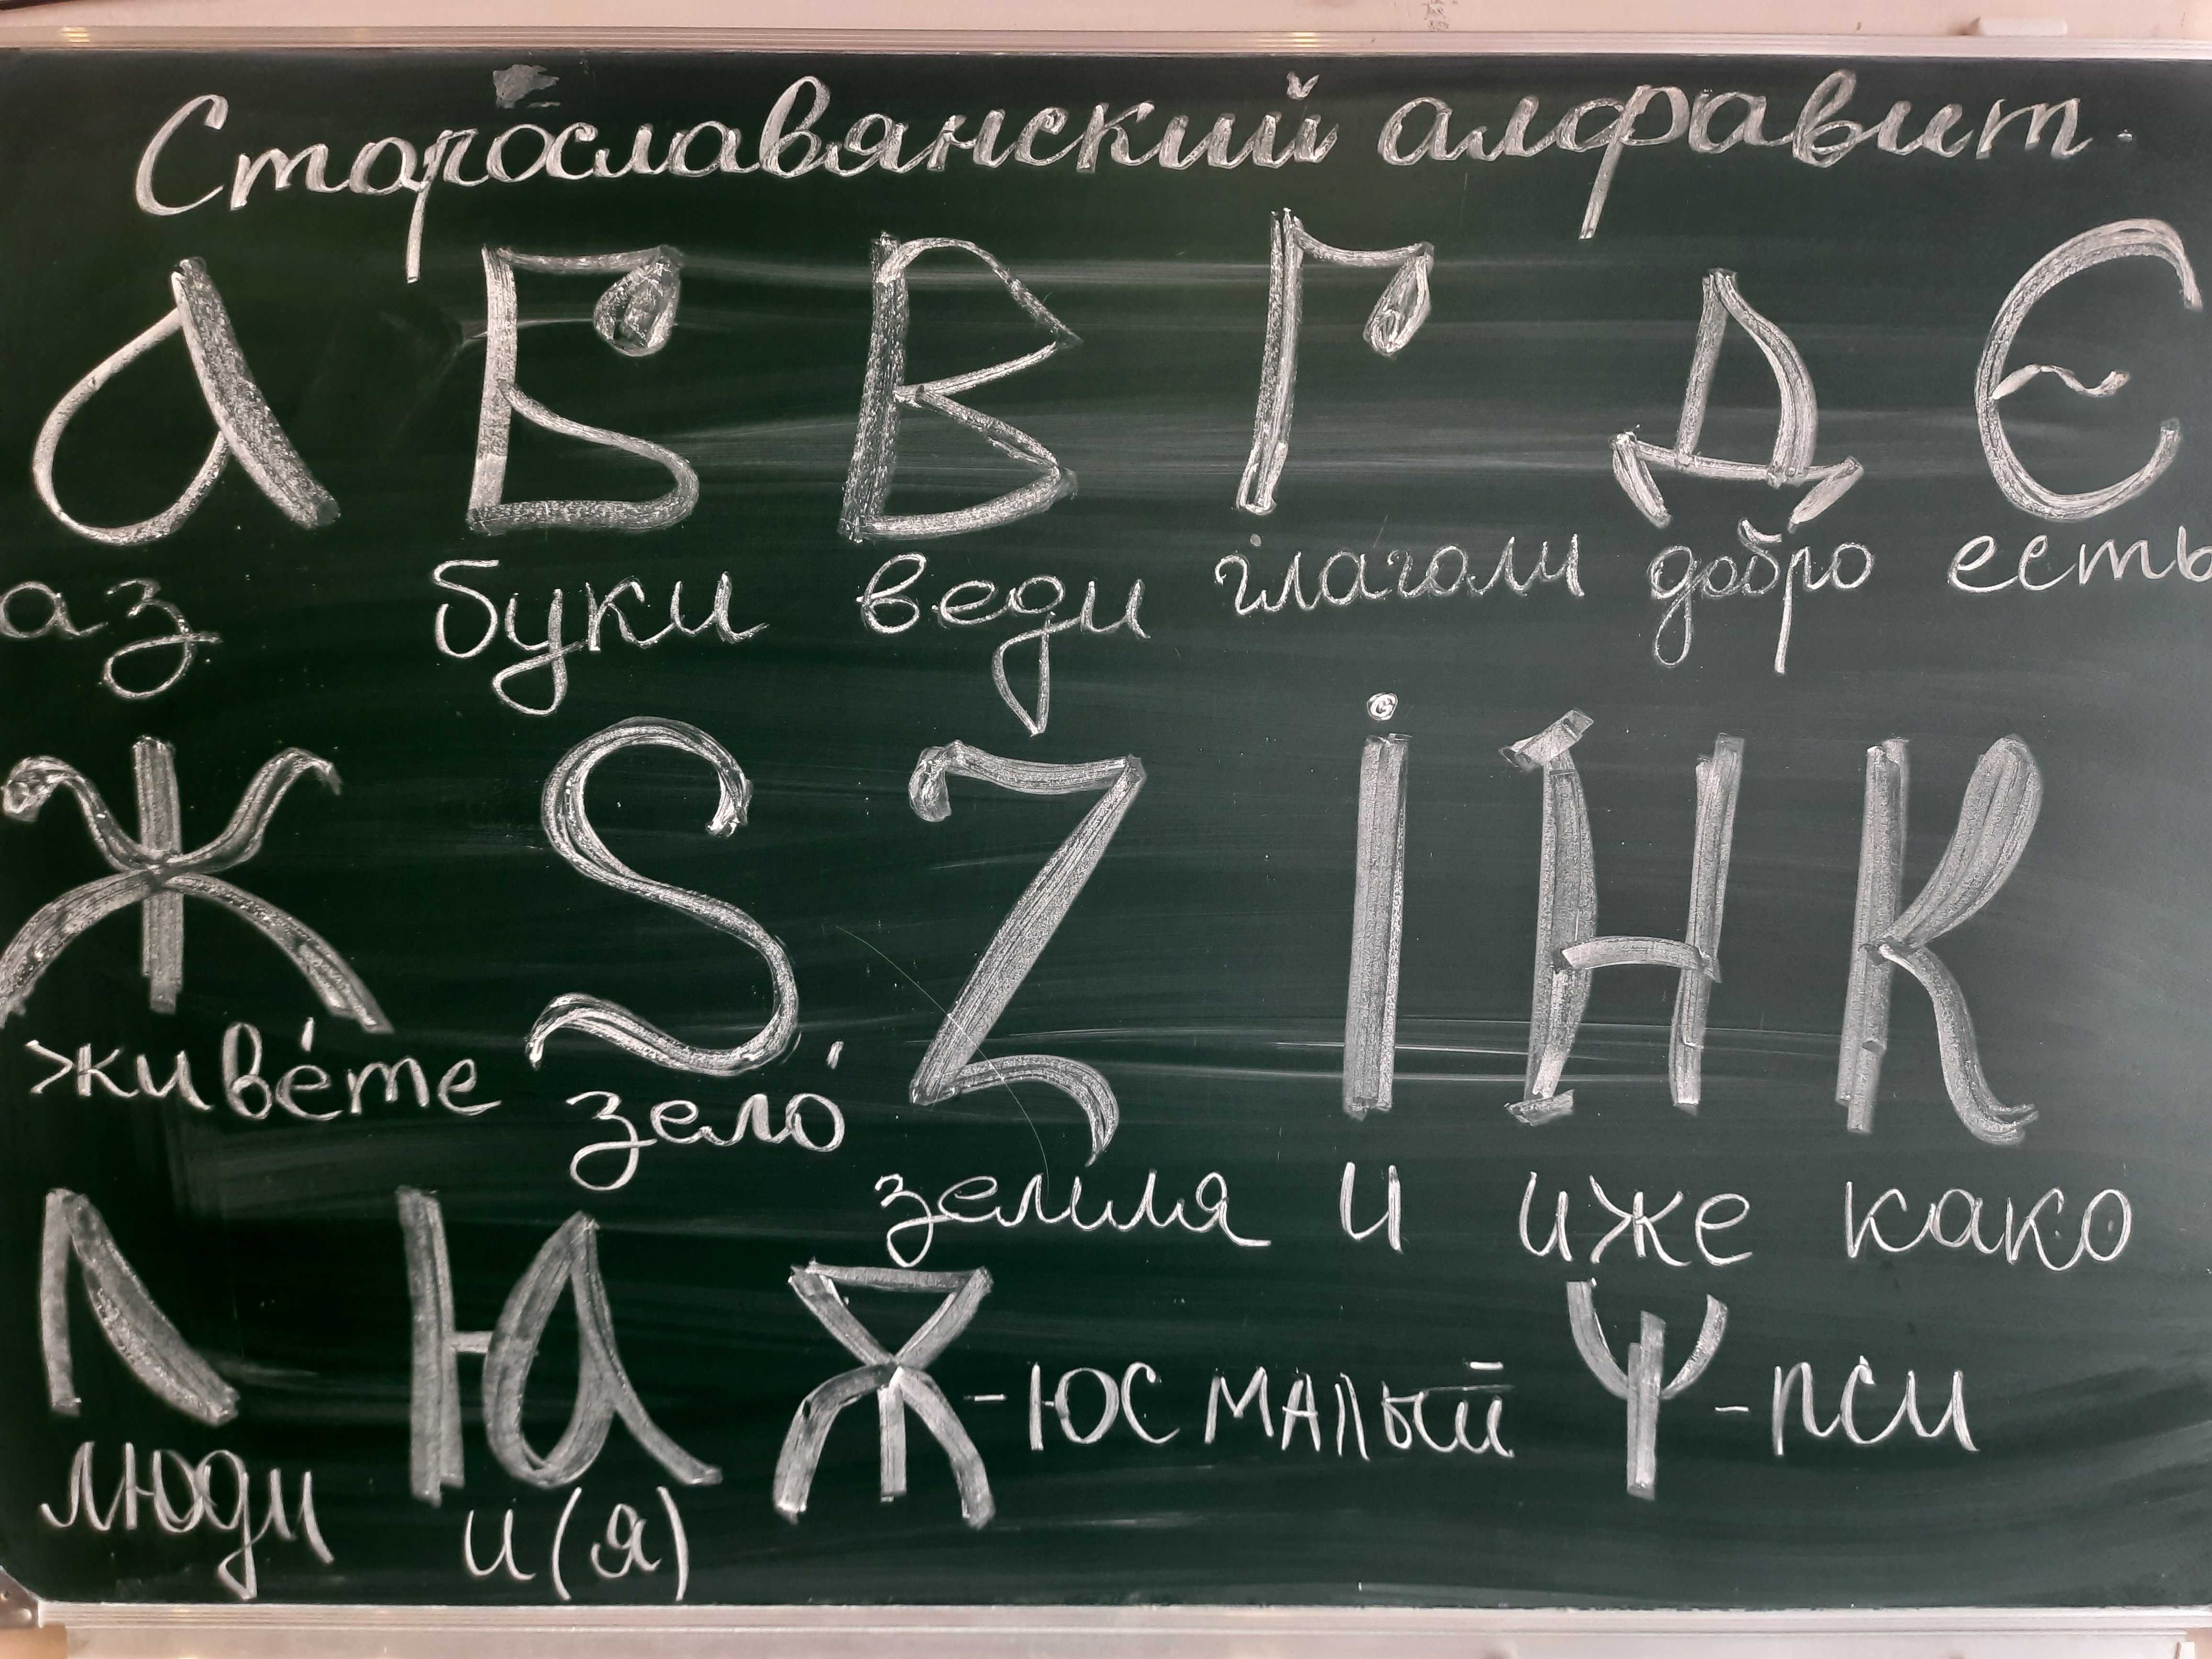 Старославянский алфавит.
А Б В Г Д Є
аз буки веди глаголи добро есть
Ж Ѕ Z І Н К
живе́те зело́ земля и иже како
Л Ꙗ Ѫ - юс малый Ѱ - пси
люди и(я)